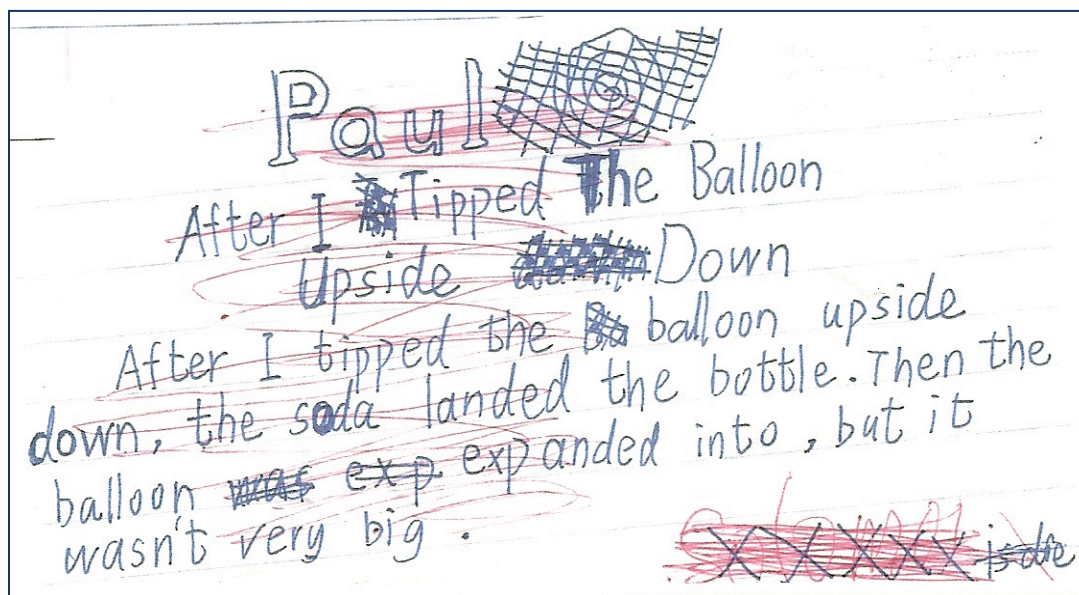 Paul
After I Tipped The Balloon
Upside Down
After I tipped the balloon upside
down, the soda landed the bottle. Then the
balloon was exp expanded into, but it
wasn't very big.
is die